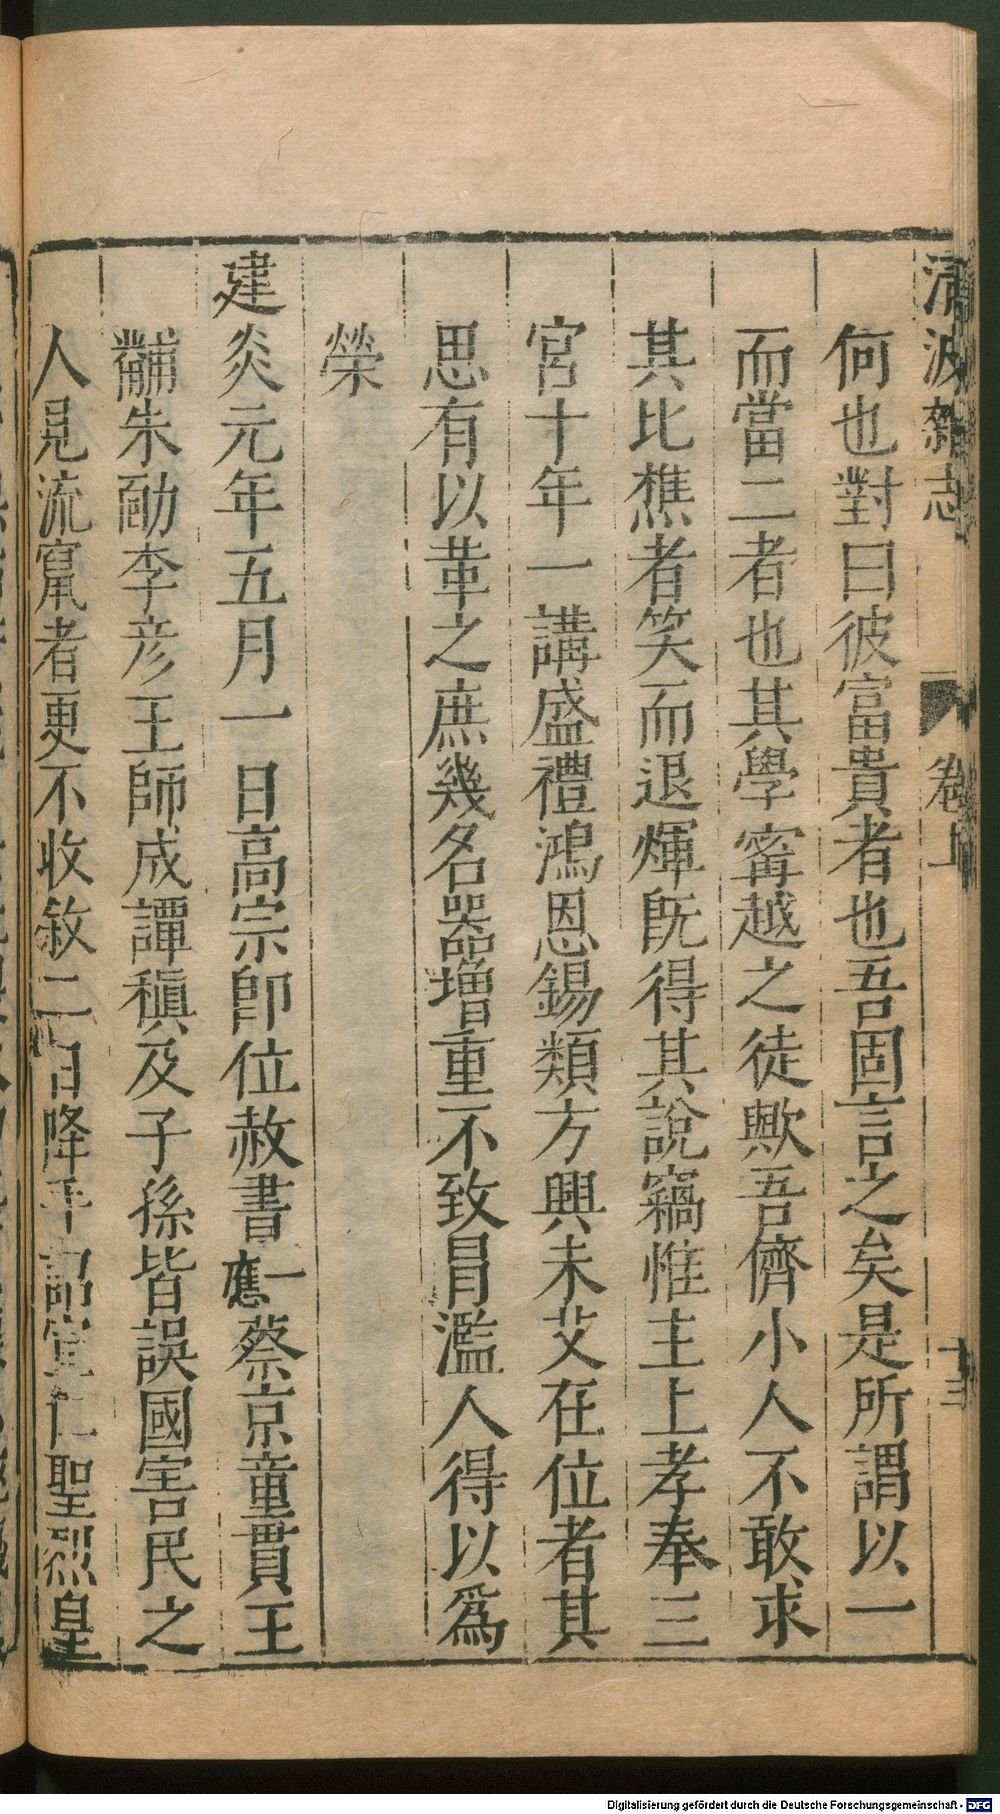 清波雜志 卷上 十三
何也對曰彼富貴者也吾固言之矣是所謂以一
而當二者也其學甯越之徒歟吾儕小人不敢求
其比樵者笑而退煇既得其說竊惟主上孝奉三
宮十年一講盛禮鴻恩錫類方興未艾在位者其
思有以革之庶幾名器增重不致冒濫人得以爲
榮
建炎元年五月一日高宗卽位赦書一應蔡京童貫王
黼朱勔李彦王師成譚稹及子孫皆誤國害民之
人見流竄者更不收敘二日降手詔宣仁聖烈皇
Digitalisierung gefördert durch die Deutsche Forschungsgemeinschaft - DFG